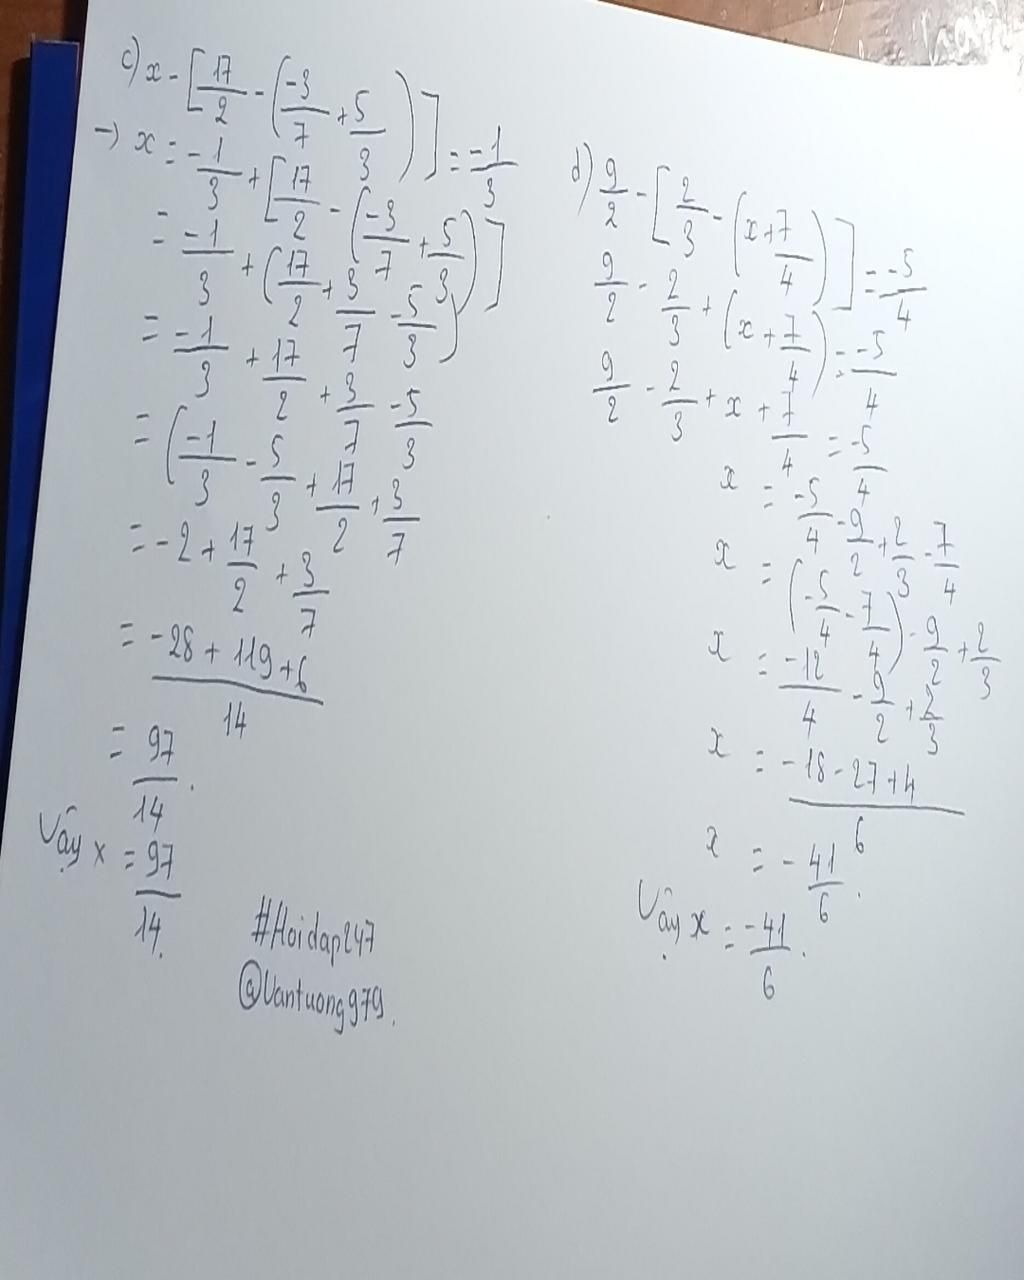 c) x - [17/2 - (-3/7 + 5/3)] = -1/3
→ x = -1/3 + [17/2 - (-3/7 + 5/3)]
= -1/3 + (17/2 + 3/7 - 5/3)
= -1/3 + 17/2 + 3/7 - 5/3
= (-1/3 - 5/3 + 17/2 + 3/7
= -2 + 17/2 + 3/7
= -28 + 119 + 6 / 14
= 97/14.
Vậy x = 97/14.
#Hoidap247
@Vantuong979.
d) 9/2 - [2/3 - (x + 7/4)] = -5/4
9/2 - 2/3 + (x + 7/4) = -5/4
9/2 - 2/3 + x + 7/4 = -5/4
x = -5/4 - 9/2 + 2/3 - 7/4
x = (-5/4 - 7/4) - 9/2 + 2/3
x = -12/4 - 9/2 + 2/3
x = -18 - 27 + 4 / 6
x = -41/6.
Vậy x = -41/6.